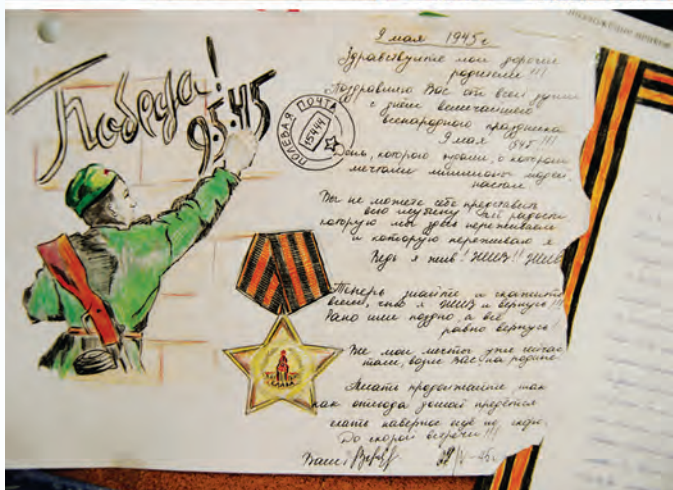 Победа!
9.5.45
ПОЛЕВАЯ ПОЧТА
15444
СЛАВА
9 мая 1945 г
Здравствуйте мои дорогие
родители !!!
Поздравляю Вас от всей души
с днем величайшего
всенародного праздника
9 мая 1945 !!!
День, которого ждали, о котором
мечтали миллионы людей.
настал
Вы не можете себе представить
всю глубину той радости
которую мы здесь переживаем
и которую переживаю я
Ведь я жив! ЖИВ!! ЖИВ
Теперь знайте и скажите
всем, что я ЖИВ и вернусь!!!
Рано или поздно, а всё
равно вернусь
Все мои мечты уже сейчас
там, возле Вас, на родине
Писать продолжайте так
как отсюда домой придётся
ехать наверное ещё не скоро.
До скорой встречи !!!
Ваш